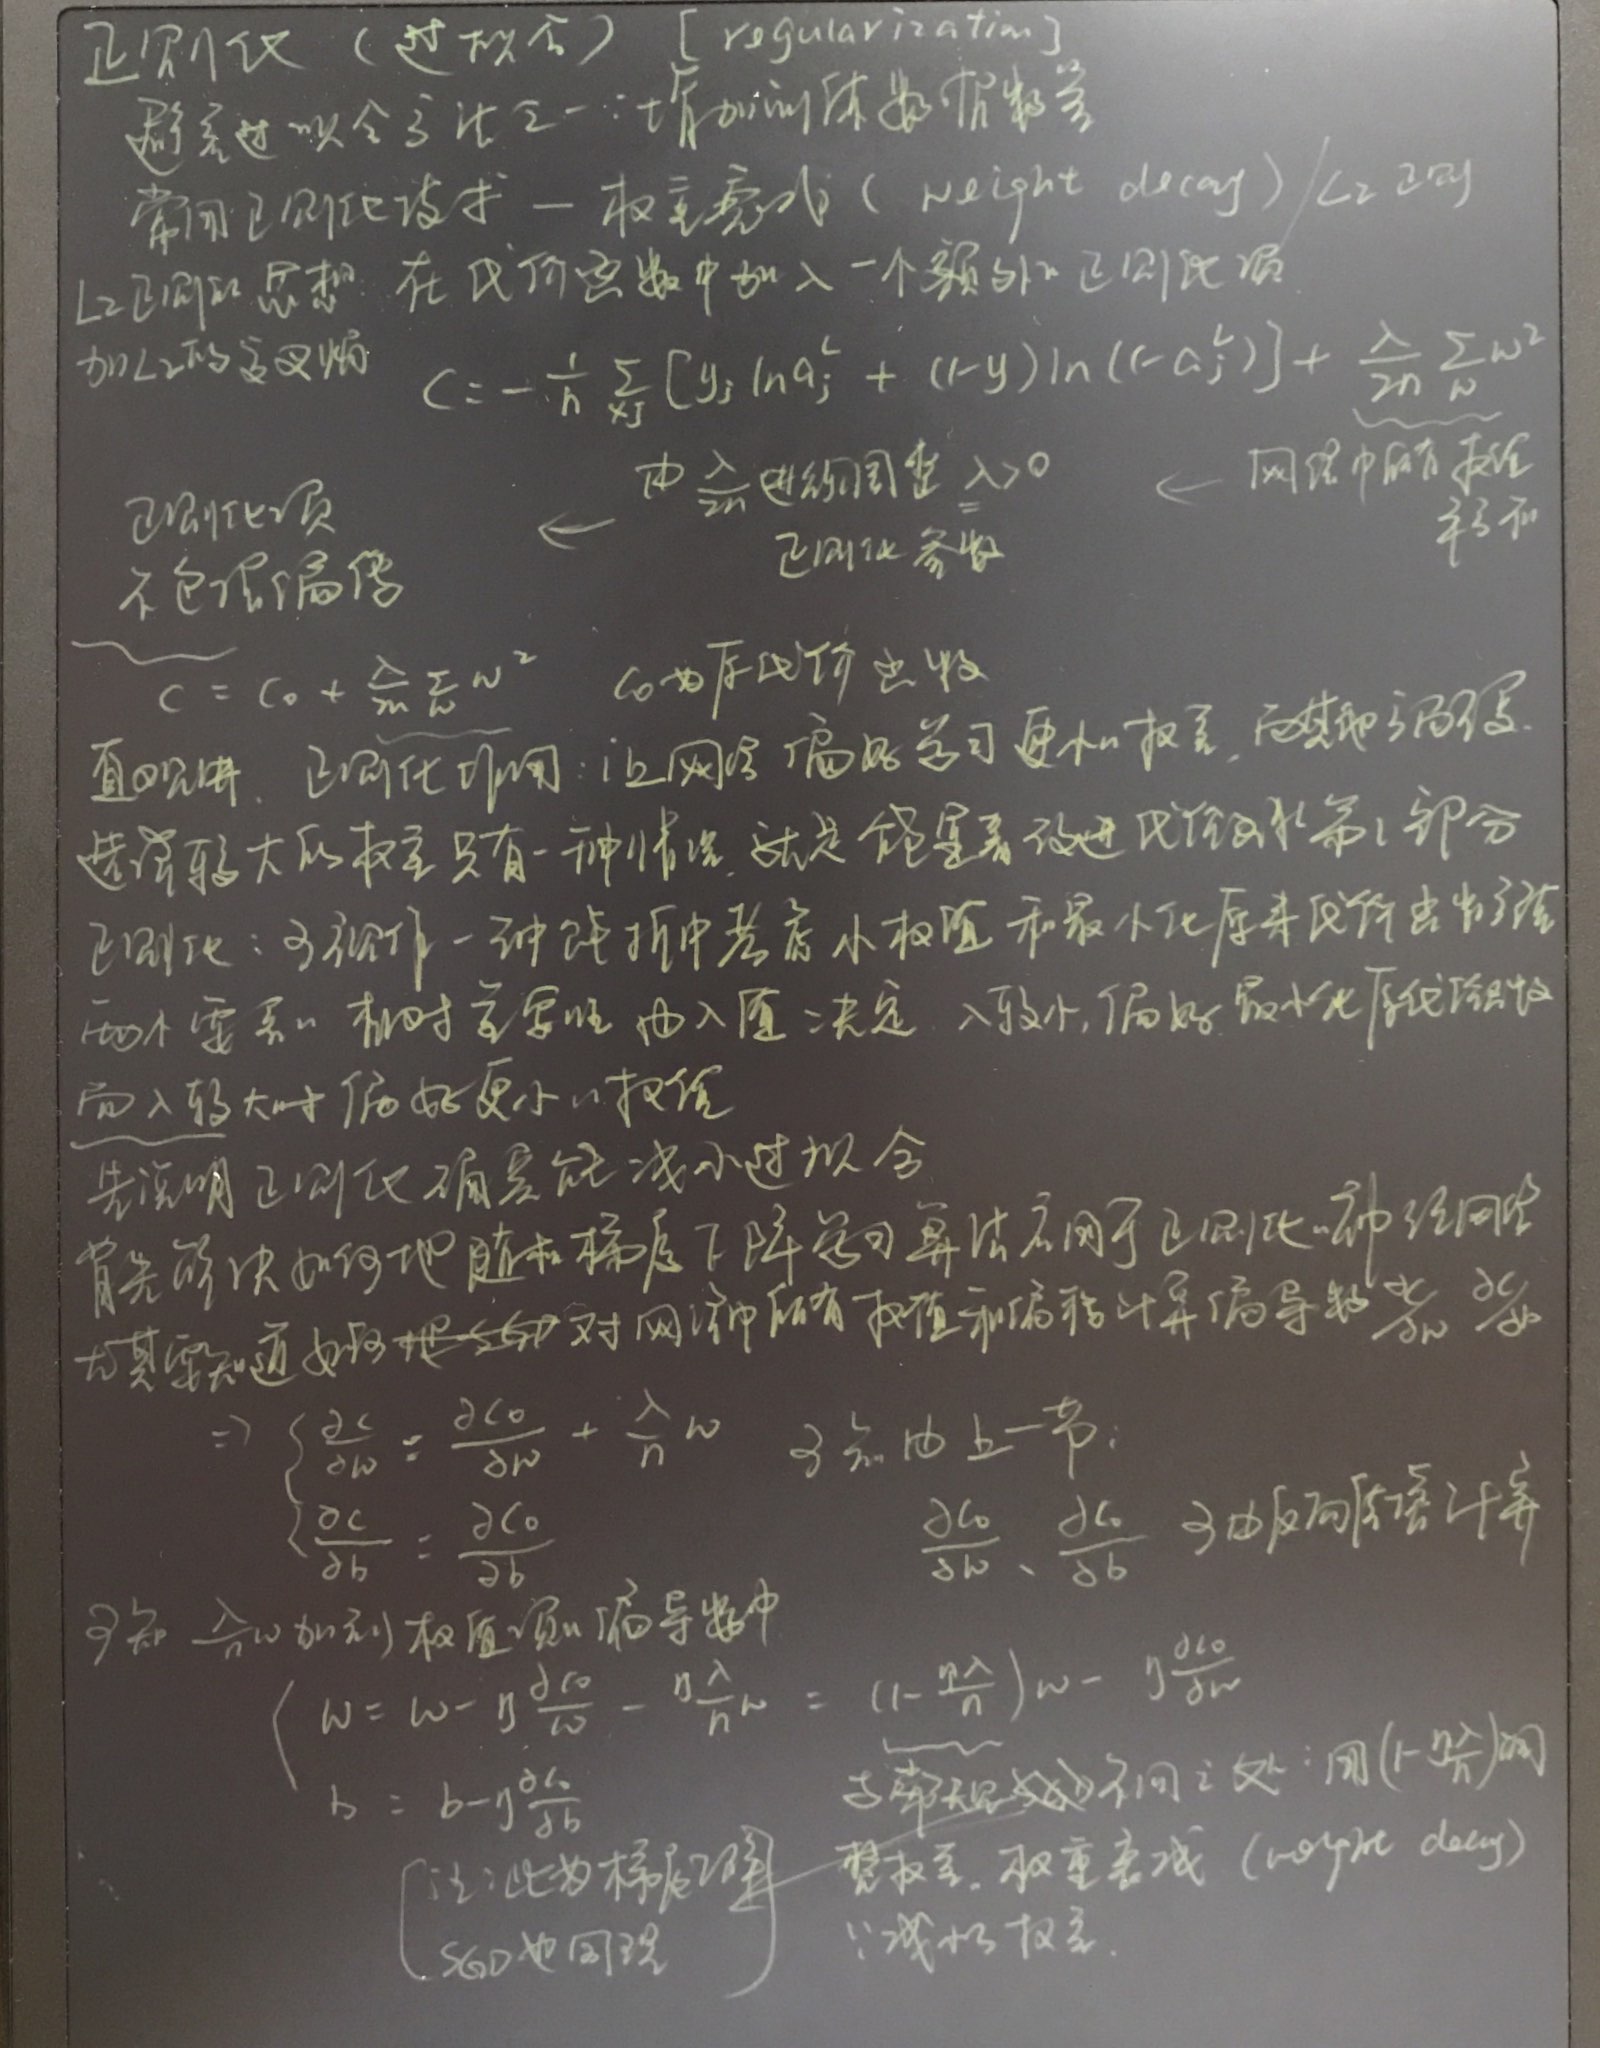 正则化（过拟合）[regularization]
避免过拟合方法之一：增加训练数据数量
常用正则化技术－权重衰减（weight decay）/L2正则
L2正则的思想：在代价函数中加入一个额外的正则化项
加L2的交叉熵
C = -1/n Σ_xj [y_j ln a_j^L + (1-y) ln (1-a_j^L)] + λ/2n Σ_w w²
由 λ/2n 进行调整 λ>0 ← 网络中所有权值
正则化项 ← 正则化参数 平方和
不包括偏停
C = C₀ + λ/2n Σ_w w² C₀为原代价函数
直观讲，正则化作用：让网络偏好学习更小的权重，
选择较大的权重只有一种情况，就是能显著改进代价函数第1部分
正则化：可视作一种折中 小权值和最小化原来代价函数
两个要素的相对重要性由λ值决定 λ较小，偏好最小化原代价函数
而λ较大时偏好更小的权值
先说明正则化确实能减小过拟合
首先解决如何地随机梯度下降学习算法应用于正则化的神经网络
尤其要知道如何 对网络中所有权值和偏移计算偏导数 ∂C/∂w ∂C/∂b
⇒ { ∂C/∂w = ∂C₀/∂w + λ/n w 可知由上一节：
{ ∂C/∂b = ∂C₀/∂b ∂C₀/∂w、∂C₀/∂b 可由反向传播计算
可知 λ/n w 加到权值项的偏导数中
{ w = w - η ∂C₀/w - ηλ/n w = (1-ηλ/n)w - η ∂C₀/∂w
b = b - η ∂C₀/∂b 与常规 不同之处：用(1-ηλ/n)调
[注：此为梯度下降 整权重. 权重衰减 (weight decay)
SGD也同理] ∵减小了权重.